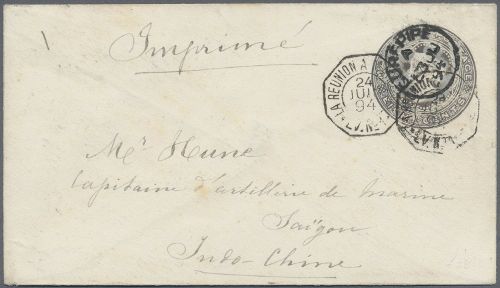 Imprimé
CUREPIPE
LA REUNION A
24
JUIL
94
L.V. N°
Mr Hune
Capitaine d'artillerie de marine
Saïgon
Indo-Chine